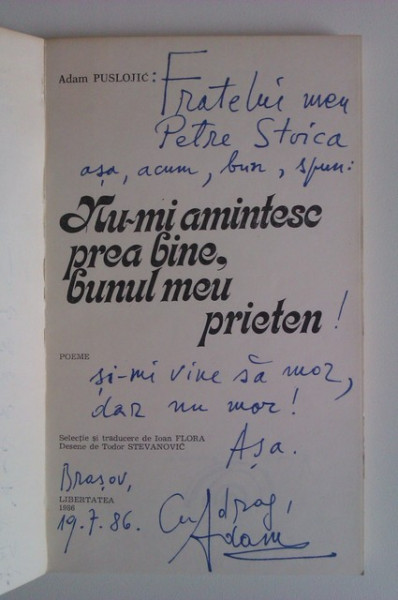 Adam PUSLOJIĆ: Fratelui meu
Petre Stoica
așa, acum, bun, spun:
Nu-mi amintesc
prea bine,
bunul meu
prieten!
POEME
și-mi vine să mor,
dar nu mor!
Selecție și traducere de Ioan FLORA
Desene de Todor STEVANOVIĆ
Așa.
Brașov,
LIBERTATEA
1986
19.7.86.
Cu drag,
Adam